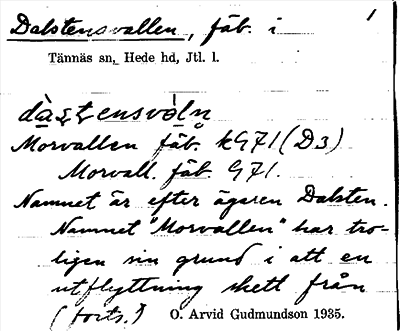 Dalstensvallen, fäb. i 1
Tännäs sn, Hede hd, Jtl. l.
Morvallen fäb. kG71 (D3)
Morvall. fäb. G71.
Namnet är efter ägaren Dalsten.
Namnet "Morvallen" har tro-
ligen sin grund i att en
utflyttning skett från
(forts.) O. Arvid Gudmundson 1935.